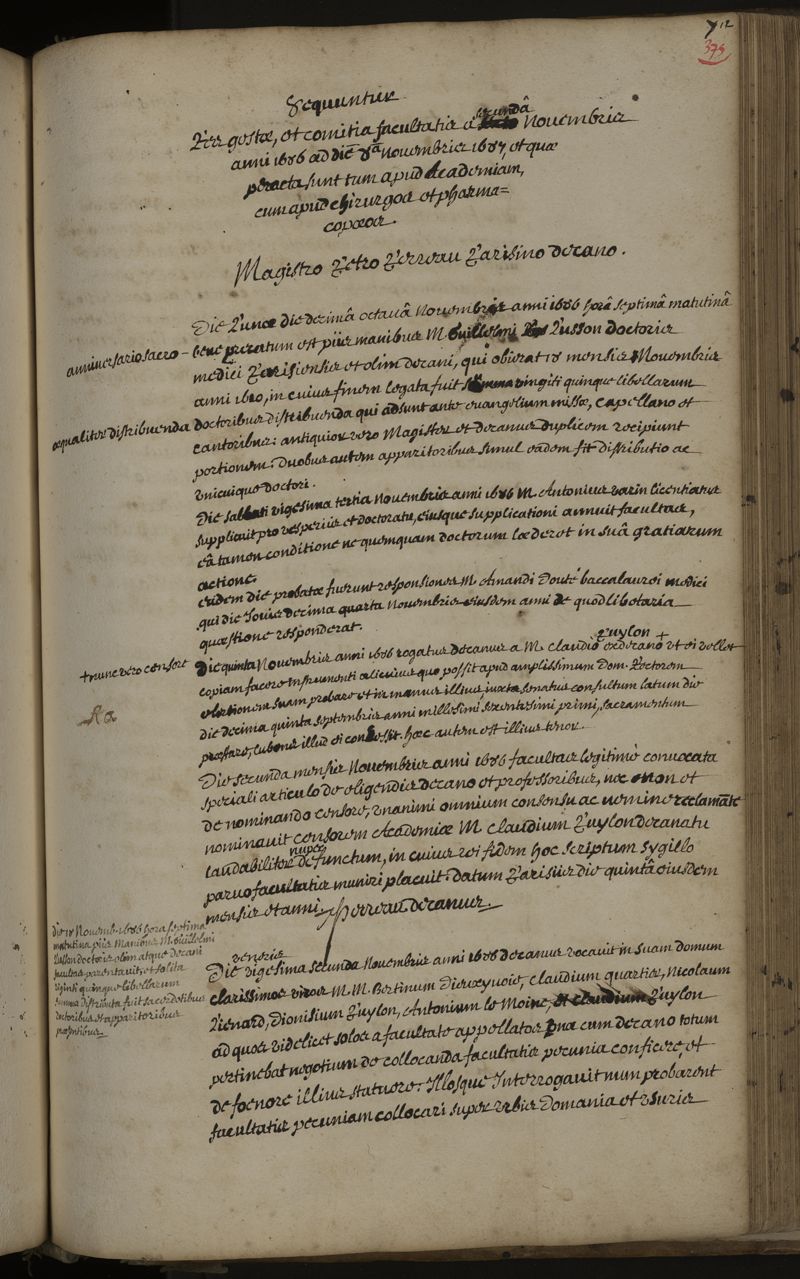 712
375
Sequuntur
Res gestæ, et comitia facultatis a secundâ Novembris
anni 1686 ad diē 8ã Novembris 1687 et quæ
peracta sunt tum apud Academiam,
cum apud chirurgos et pharma=
copœos.
Magistro Petro Perreau Parisino decano.
Die Lunæ die decimâ octavâ Novembris anni 1686 horâ septimâ matutinâ
anniversario sacro - bene precatum est piis manibus M. Guillelmi Lusson doctoris
medici Parisiensis et olim decani, qui obierat 18 mensis Novembris
anni 1680, in cuius finem legata fuit summa viginti quinque libellarum
æqualiter distribuenda doctoribus distribuenda qui adsunt ante evangelium missæ, capellano et
cantoribus: antiquior vero Magister et decanus duplicem recipiunt
portionem. Duobus autem apparitoribus simul eadem fit distributio ac
unicuique doctori.
Die sabbati vigesima tertia Novembris anni 1686 M. Antonius varin licentiatus
supplicuit pro vesperiis et doctoratu, eiusque supplicationi annuit facultas,
eâ tamen conditione ne quemquam doctorum læderet in suâ gratiarum
actione.
Eidem die probatæ fuerunt responsiones M. Amandi Douté baccalaurei medici
qui die Jovis decima quarta Novembris eiusdem anni de quodlibetaria
quæstione responderat.
Puylon +
+ nunc vero censore Die quinta Novembris anni 1686 rogatus decanus a M. claudio exdecano ut ei vellet
copiam facere instrumenti alicuius quo possit apud amplissimum Dom. Rectorem
electionem suam probare et in manus illius, juxta senatus consultum latum die
die decima quinta septembris anni millesimi sexcentesimi primi, sacramentum
præstare, lubens illud ei concessit. hoc autem est illius tenor.
Die secunda mensis Novembris anni 1686 facultas legitime convocata
speciali articulo de eligendis decano et professoribus, nec enon et
de nominando censore, unanimi omnium consensu ac nemine reclamāte
nominavit censorem Academiæ M. claudium Puylon decanatu
nuper
laudabiliter defunctum, in cuius rei fidem hoc scriptum sygillo
parvo facultatis muniri placuit. datum Parisiis die quintâ eiusdem
mensis et anni. Perreau decanus.
die 18 Novemb. 1686 hora septima
matutina piis Manibus M. Guillelmi
Lusson doctoris olim atque decani
facultas parentavit, et solita
viginti quinque libellarum
summa distributa fuit sacerdotibus
doctoribus et apparitoribus
præsentibus.
veneris
Die vigesima secunda Novembris anni 1686 decanus vocavit in suam domum
clarissimos viros M. M. Bertinum Dieuxyvoie, Claudium quartier, Nicolaum
Lienard, Dionisium Puylon, Antonium le Moine, et claudium Puylon
ad quos videlicet solos a facultate appellatos una cum decano totum
pertinebat negotium de collocanda facultatis pecunia conficere, et
de foenore illius statuere. Illosque Interrogavit num probarent
facultatis pecuniam collocari super urbis Domania et usuris